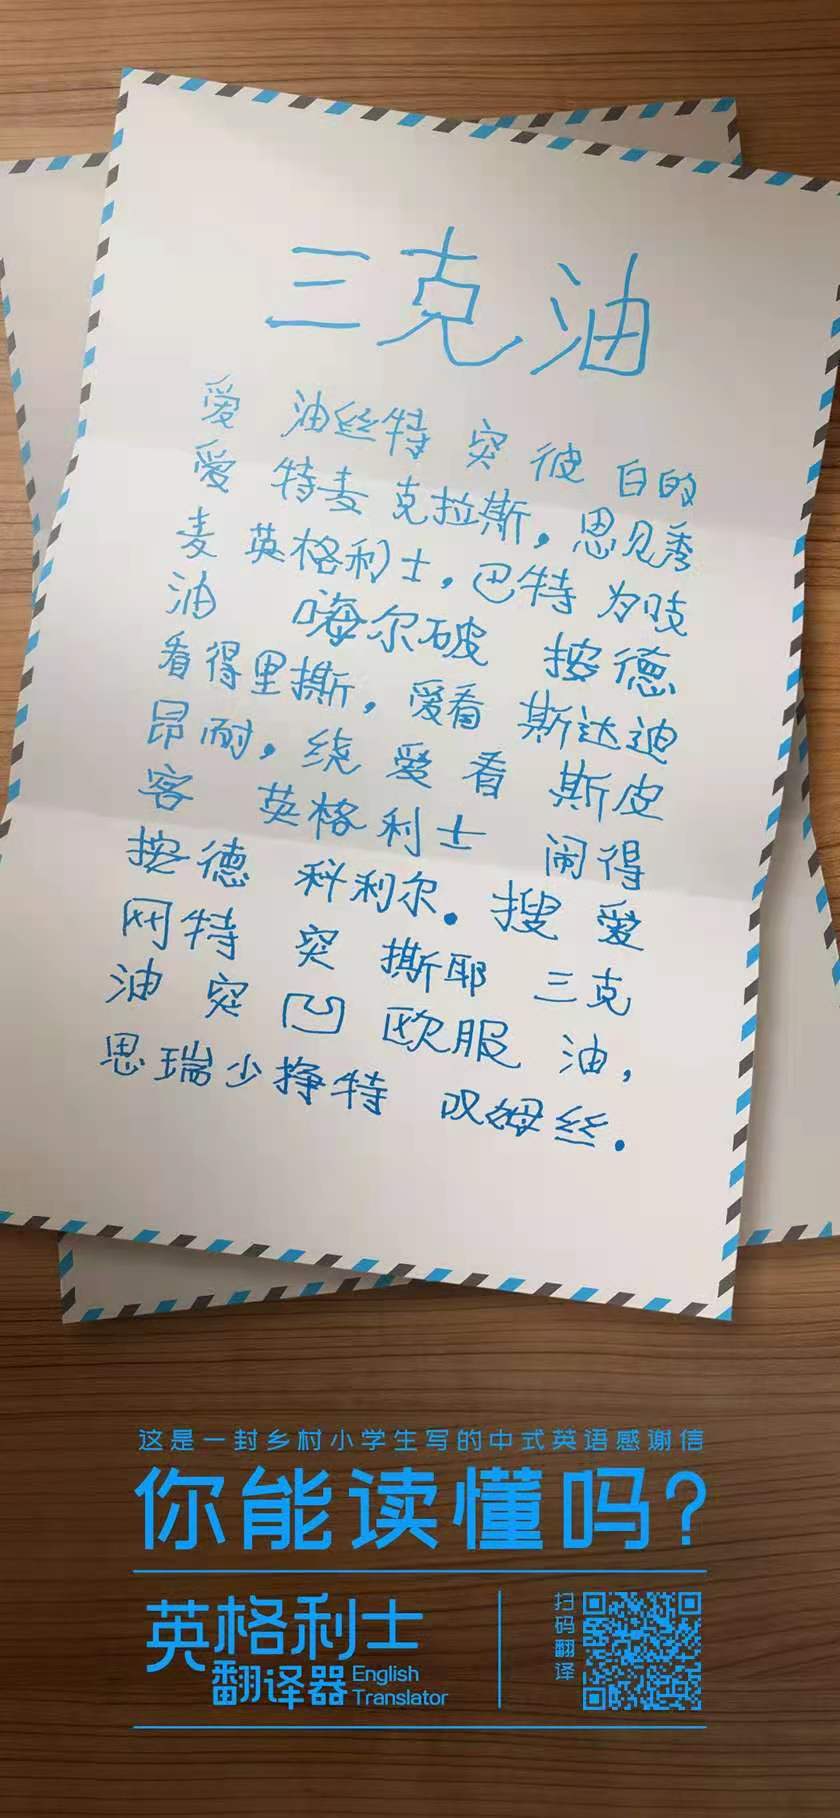 三克油
爱 油丝特 突 彼 白的
爱 特麦 克拉斯，思见秀
麦 英格利士，巴特 为吱
油 嗨尔破 按德
看得里撕，爱看 斯达迪
昂耐，绕 爱 看 斯皮
客 英格利士 闹得
按德 科利尔。搜 爱
网特 突 撕耶 三克
油 突 凹 欧服 油，
思瑞少挣特 叹姆丝.
这是一封乡村小学生写的中式英语感谢信
你能读懂吗?
英格利士
翻译器 English Translator
扫码翻译